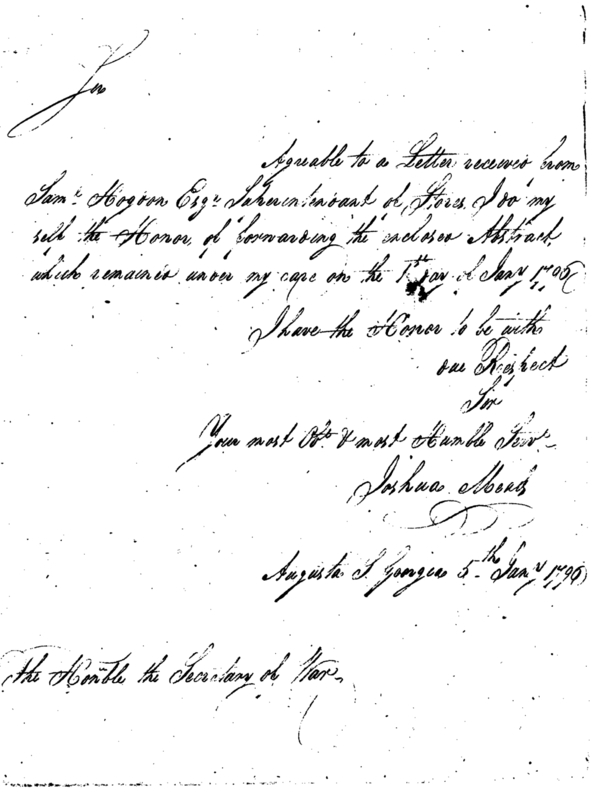 Sir
Agreable to a Letter received from
Saml. Hogdon Esqr. Superintendant of Stores, I do my
self the Honor of forwarding the enclosed Abstract
which remained under my care on the 1st day of Jany 1796
I have the Honor to be with
due Respect
Sir
Your most Obt. & most Humble Servt.
Joshua Mead
Augusta S. Georgia 5th Jany 1796
The Honble the Secretary of War